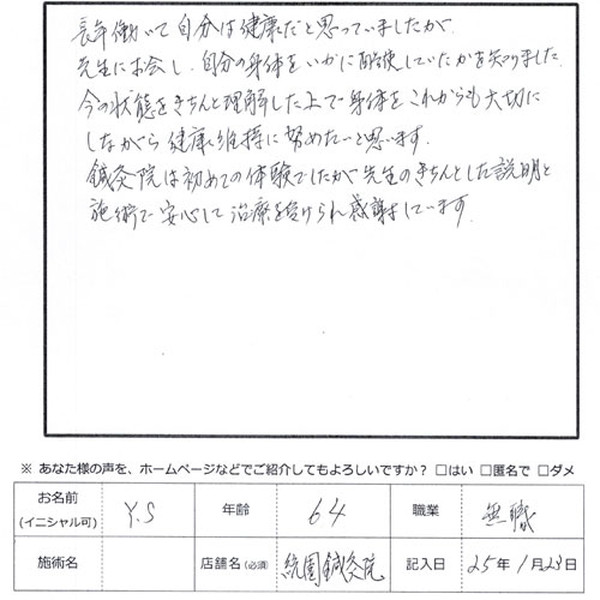 長年働いて自分は健康だと思っていましたが
先生にお会し、自分の身体をいかに酷使していたかを知りました。
今の状態をきちんと理解した上で身体をこれからも大切に
しながら健康維持に努めたいと思います。
鍼灸院は初めての体験でしたが先生のきちんとした説明と
施術で安心して治療を受けられ感謝しています。
※ あなた様の声を、ホームページなどでご紹介してもよろしいですか？ □はい □匿名で □ダメ
お名前 (イニシャル可) Y.S 年齢 64 職業 無職
施術名 店舗名(必須) 統園鍼灸院 記入日 25年1月23日